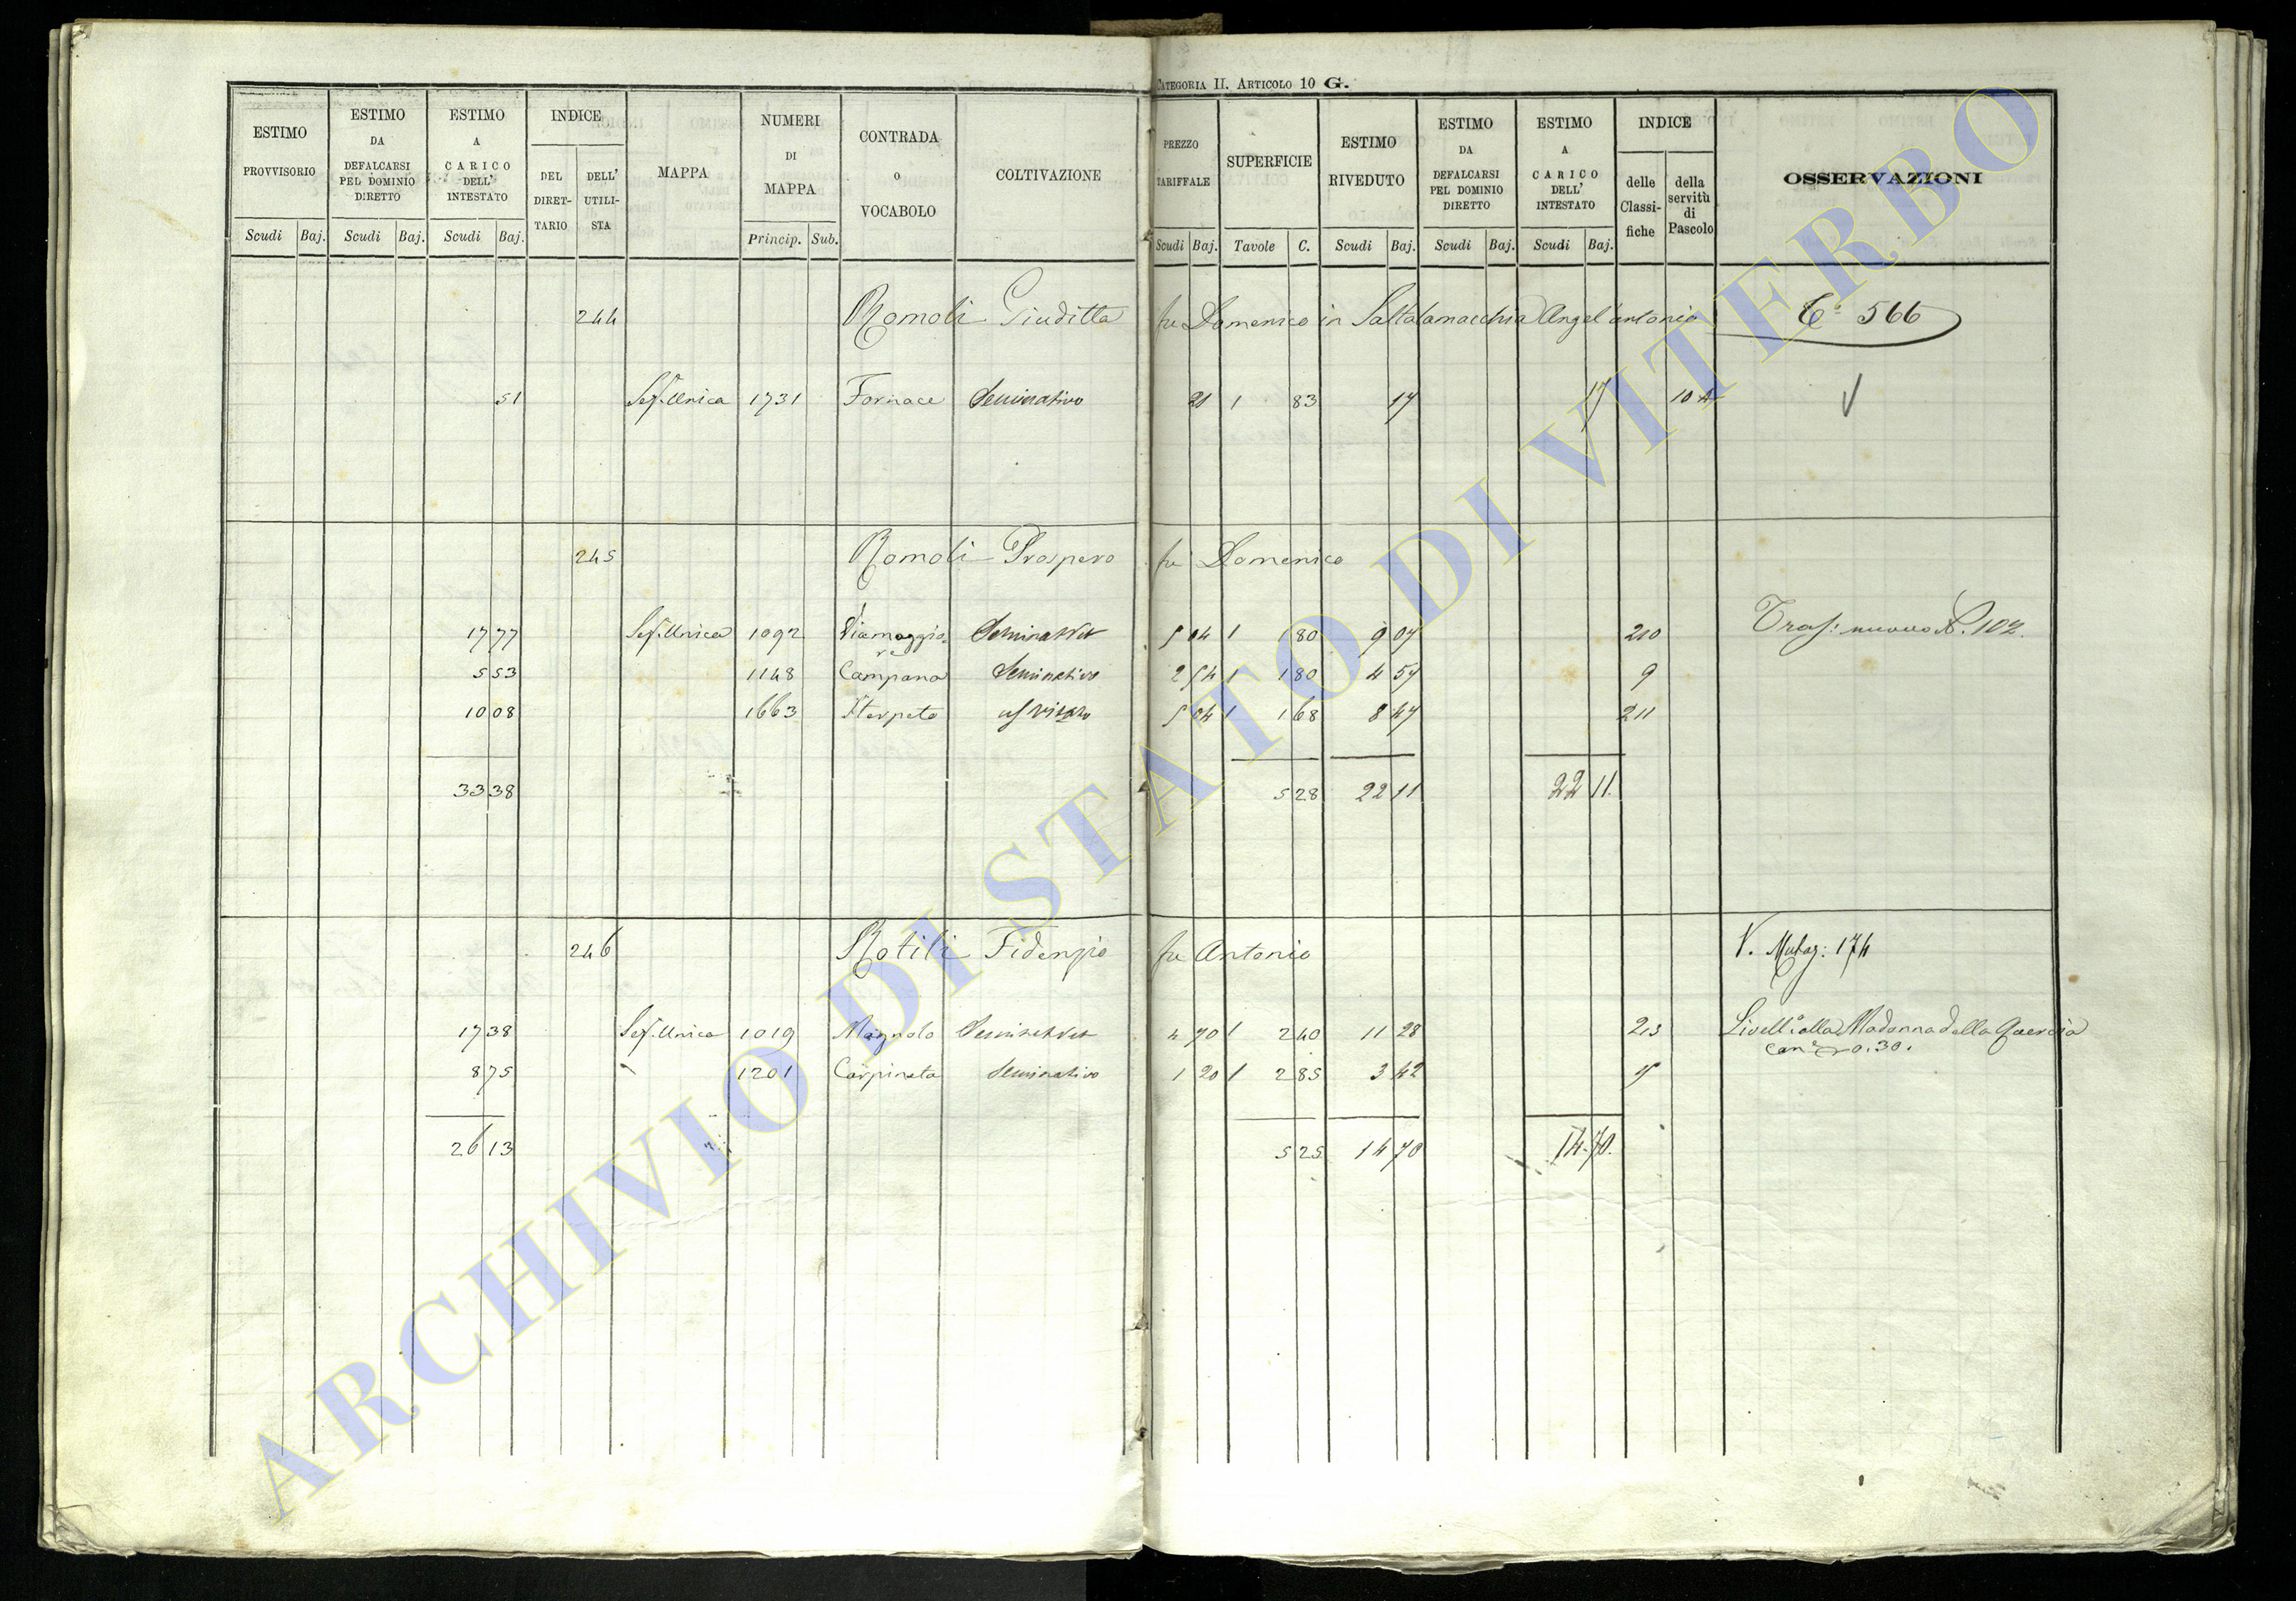 CATEGORIA II. ARTICOLO 10 G.
ESTIMO PROVVISORIO Scudi Baj.
ESTIMO DA DEFALCARSI PEL DOMINIO DIRETTO Scudi Baj.
ESTIMO A CARICO DELL' INTESTATO Scudi Baj.
INDICE DEL DIRET-TARIO DELL' UTILI-STA
MAPPA
NUMERI DI MAPPA Princip. Sub.
CONTRADA o VOCABOLO
COLTIVAZIONE
PREZZO TARIFFALE Scudi Baj.
SUPERFICIE Tavole C.
ESTIMO RIVEDUTO Scudi Baj.
ESTIMO DA DEFALCARSI PEL DOMINIO DIRETTO Scudi Baj.
ESTIMO A CARICO DELL' INTESTATO Scudi Baj.
INDICE delle Classi-fiche della servitù di Pascolo
OSSERVAZIONI
244 Romoli Giuditta fu Domenico in Saltalamacchia Angel'antonio 566
51 Sez. Unica 1731 Fornace Seminativo 21 1 83 17 17 10 A
245 Romoli Prospero fu Domenico
17 77 Sez. Unica 1092 Viamaggiore 5 04 1 1 80 9 07 210 Tras: nuovo N. 102.
5 53 1148 Campana Seminativo 2 54 1 1 80 4 57 9
10 08 1663 Sterpeto 5 04 1 1 68 8 47 211
33 38 5 28 22 11 22 11.
246 Rotili Fidenzio fu Antonio 174
17 38 Sez. Unica 1019 Magnolo 4 70 1 2 40 11 28 213 Livell° alla Madonna della Quercia
0.30.
8 75 1201 Carpineta Seminativo 1 20 1 2 85 3 42
26 13 5 25 14 70 14.70.
ARCHIVIO DI STATO DI VITERBO